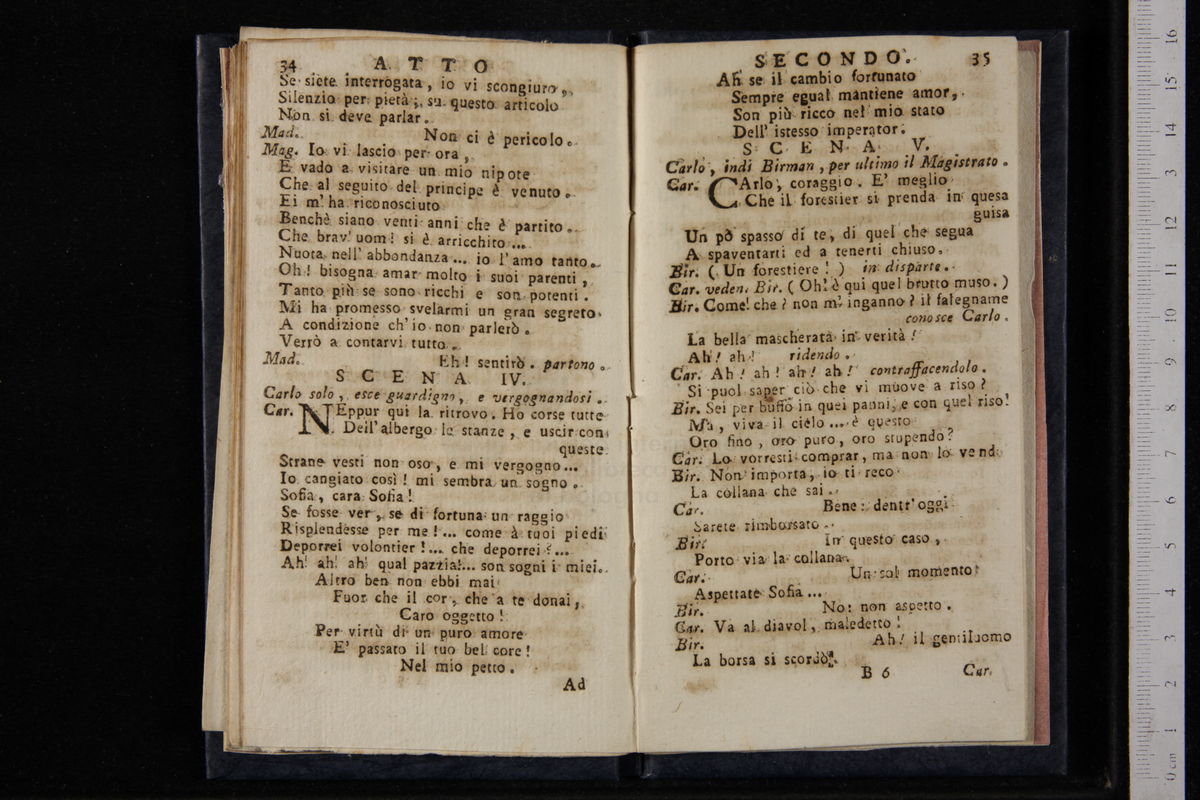 34 ATTO
Se siete interrogata, io vi scongiuro,
Silenzio per pietà; su questo articolo
Non si deve parlar.
Mad. Non ci è pericolo.
Mag. Io vi lascio per ora,
E vado a visitare un mio nipote
Che al seguito del principe è venuto.
Ei m'ha riconosciuto
Benchè siano venti anni che è partito.
Che brav' uom! si è arricchito...
Nuota nell' abbondanza... io l'amo tanto.
Oh! bisogna amar molto i suoi parenti,
Tanto più se sono ricchi e son potenti.
Mi ha promesso svelarmi un gran segreto
A condizione ch'io non parlerò.
Verrò a contarvi tutto.
Mad. Eh! sentirò. partono.
SCENA IV.
Carlo solo, esce guardigno, e vergognandosi.
Car. NEppur qui la ritrovo. Ho corse tutte
Dell'albergo le stanze, e uscir con
queste
Strane vesti non oso, e mi vergogno...
Io cangiato così! mi sembra un sogno.
Sofia, cara Sofia!
Se fosse ver, se di fortuna un raggio
Risplendesse per me!... come à tuoi piedi
Deporrei volontier!... che deporrei?...
Ah! ah! ah! qual pazzia!... son sogni i miei.
Altro ben non ebbi mai
Fuor che il cor, che a te donai,
Caro oggetto!
Per virtù di un puro amore
E' passato il tuo bel core!
Nel mio petto.
Ad
SECONDO. 35
Ah se il cambio fortunato
Sempre egual mantiene amor,
Son più ricco nel mio stato
Dell' istesso imperator.
SCENA V.
Carlo, indi Birman, per ultimo il Magistrato.
Car. CArlo, coraggio. E' meglio
Che il forestier si prenda in quesa
guisa
Un pò spasso di te, di quel che segua
A spaventarti ed a tenerti chiuso.
Bir. (Un forestiere!) in disparte.
Car. veden. Bir. (Oh! è qui quel brutto muso.)
Bir. Come! che? non m' inganno? il falegname
conosce Carlo.
La bella mascherata in verità!
Ah! ah! ridendo.
Car. Ah! ah! ah! ah! contraffacendolo.
Si puol saper ciò che vi muove a riso?
Bir. Sei per buffo in quei panni, e con quel riso!
Ma, viva il cielo... è questo
Oro fino, oro puro, oro stupendo?
Car. Lo vorresti comprar, ma non lo vendo
Bir. Non importa, io ti reco
La collana che sai.
Car. Bene: dentr'oggi
Sarete rimborsato.
Bir. In questo caso,
Porto via la collana.
Car. Un sol momento
Aspettate Sofia...
Bir. No: non aspetto.
Car. Va al diavol, maledetto!
Bir. Ah! il gentiluomo
La borsa si scordò.
B 6 Car.
0 cm 1 2 3 4 5 6 7 8 9 10 11 12 13 14 15 16